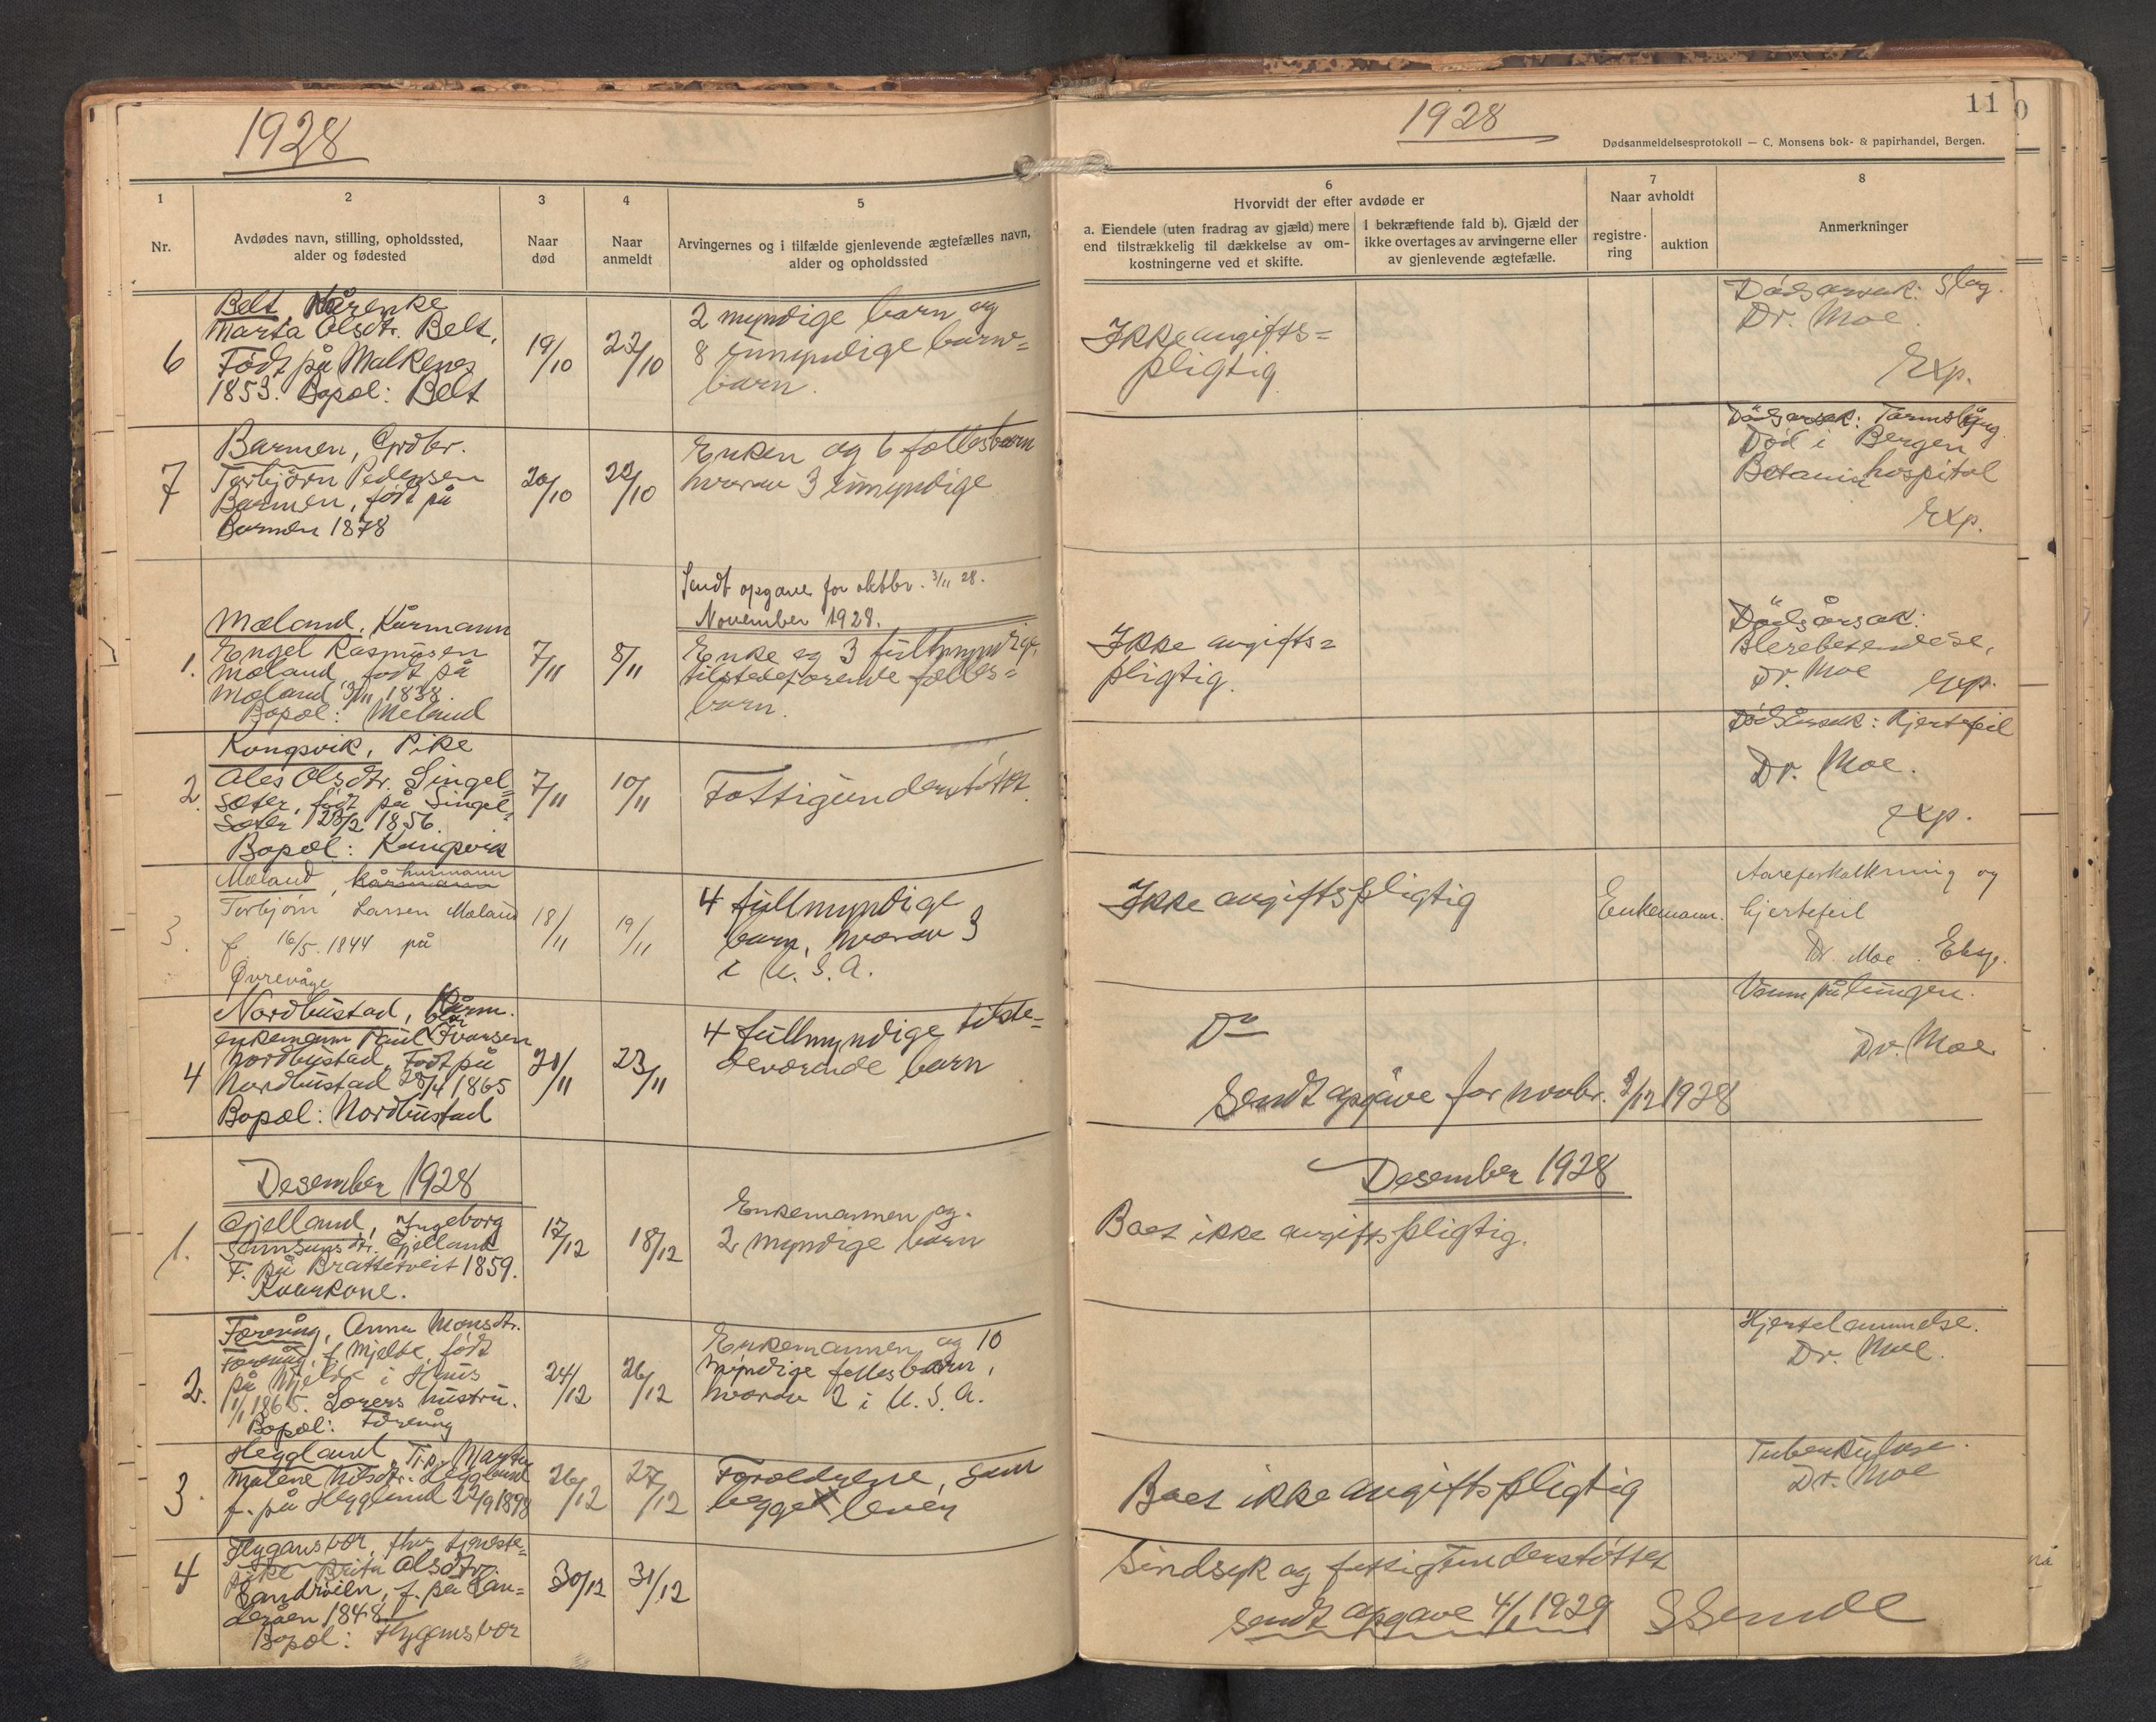 1928
1
2
3
4
5
Nr.
Avdødes navn, stilling, opholdssted,
alder og fødested
Naar
død
Naar
anmeldt
Arvingernes og i tilfælde gjenlevende ægtefælles navn,
alder og opholdssted
6
Belt, Kårenke
Marta Olsdtr. Belt,
Født på Malkenes
1853. Bopæl: Belt
19/10
22/10
2 myndige barn og
8 umyndige barne=
barn.
7
Barmen, Grdbr.
Torbjörn Pedersen
Barmen, født på
Barmen 1878
20/10
22/10
Enken og 6 fællesbarn
hvorav 3 umyndige
Sendt opgave for oktbr. 3/11 28.
November 1928.
1.
Mæland, Kårmann
Engel Rasmusen
Mæland, født på
Mæland 3/11 1838.
Bopæl: Mæland
7/11
8/11
Enke og 3 fullmyndige
tilstedeværende fælles=
barn.
2.
Kongsvik, Pike
Ales Olsdtr. Singel=
sæter, født på Singel=
sæter 1856.
Bopæl: Kongsvik
7/11
10/11
Fattigunderstøttet.
3.
Mæland, kårmann husmann
Torbjörn Larsen Mæland
f. 16/5. 1844 på
Øvrevåge
18/11
19/11
4 fullmyndige
barn, hvorav 3
i U.S.A.
4
Nordhustad, Kårm.
enkemann Paul Ivarsen
Nordhustad, Født på
Nordhustad 25/4 1865
Bopæl: Nordhustad
21/11
23/11
4 fullmyndige tilste=
deværende barn
Desember 1928
1.
Gjelland, Ingeborg
Samsonsdtr. Gjelland
F. på Brattetveit 1859.
Kårkone.
17/12
18/12
Enkemannen og
2 myndige barn
2.
Færevåg, Anna Monsdtr.
Færevåg, f. Mjelde, født
på Mjelde i Haus
1/11 1865. hustru.
Bopæl: Færevåg
24/12
26/12
Enkemannen og 10
myndige fellesbarn,
hvorav 2 i U.S.A.
3.
Heggland,
Malene Nilsdtr. Heggland
f. på Heggland 22/9 1898
26/12
27/12
Foreldrene, som
begge lever
4
Flygansvær, fhv. tjeneste=
pike Brita Olsdtr.
Sandviken, f. på San=
deråen 1848
Bopæl: Flygansvær
30/12
31/12
1928
11
Dødsanmeldelsesprotokoll — C. Monsens bok- & papirhandel, Bergen.
6
Hvorvidt der efter avdøde er
a. Eiendele (uten fradrag av gjæld) mere
end tilstrækkelig til dækkelse av om-
kostningerne ved et skifte.
I bekræftende fald b). Gjæld der
ikke overtages av arvingerne eller
av gjenlevende ægtefælle.
7
Naar avholdt
registre-
ring
auktion
8
Anmerkninger
Ikke avgifts=
pligtig
Dødsårsak: Slag.
Dr. Moe.
Exp.
Dødsårsak: Tarmslyng
Død i Bergen
Betanien hospital
Exp.
Ikke avgifts=
pligtig.
Dödsårsak:
Blærebetendelse,
Dr. Moe
Exp.
Dødsårsak: Hjertefeil
Dr. Moe.
Exp.
Ikke avgiftspligtig
Enkemann.
Aareforkalkning og
hjertefeil
Dr. Moe. Eksp.
Do
Vann på lungen.
Dr. Moe
Sendt opgave for novbr. 3/12 1928
Desember 1928
Boet ikke avgiftspligtig.
Hjertelammelse.
Dr. Moe.
Boet ikke avgiftspligtig
Tuberkulose.
Dr. Moe
Sindsyk og fattigunderstøttet
Sendt opgave 4/1 1929